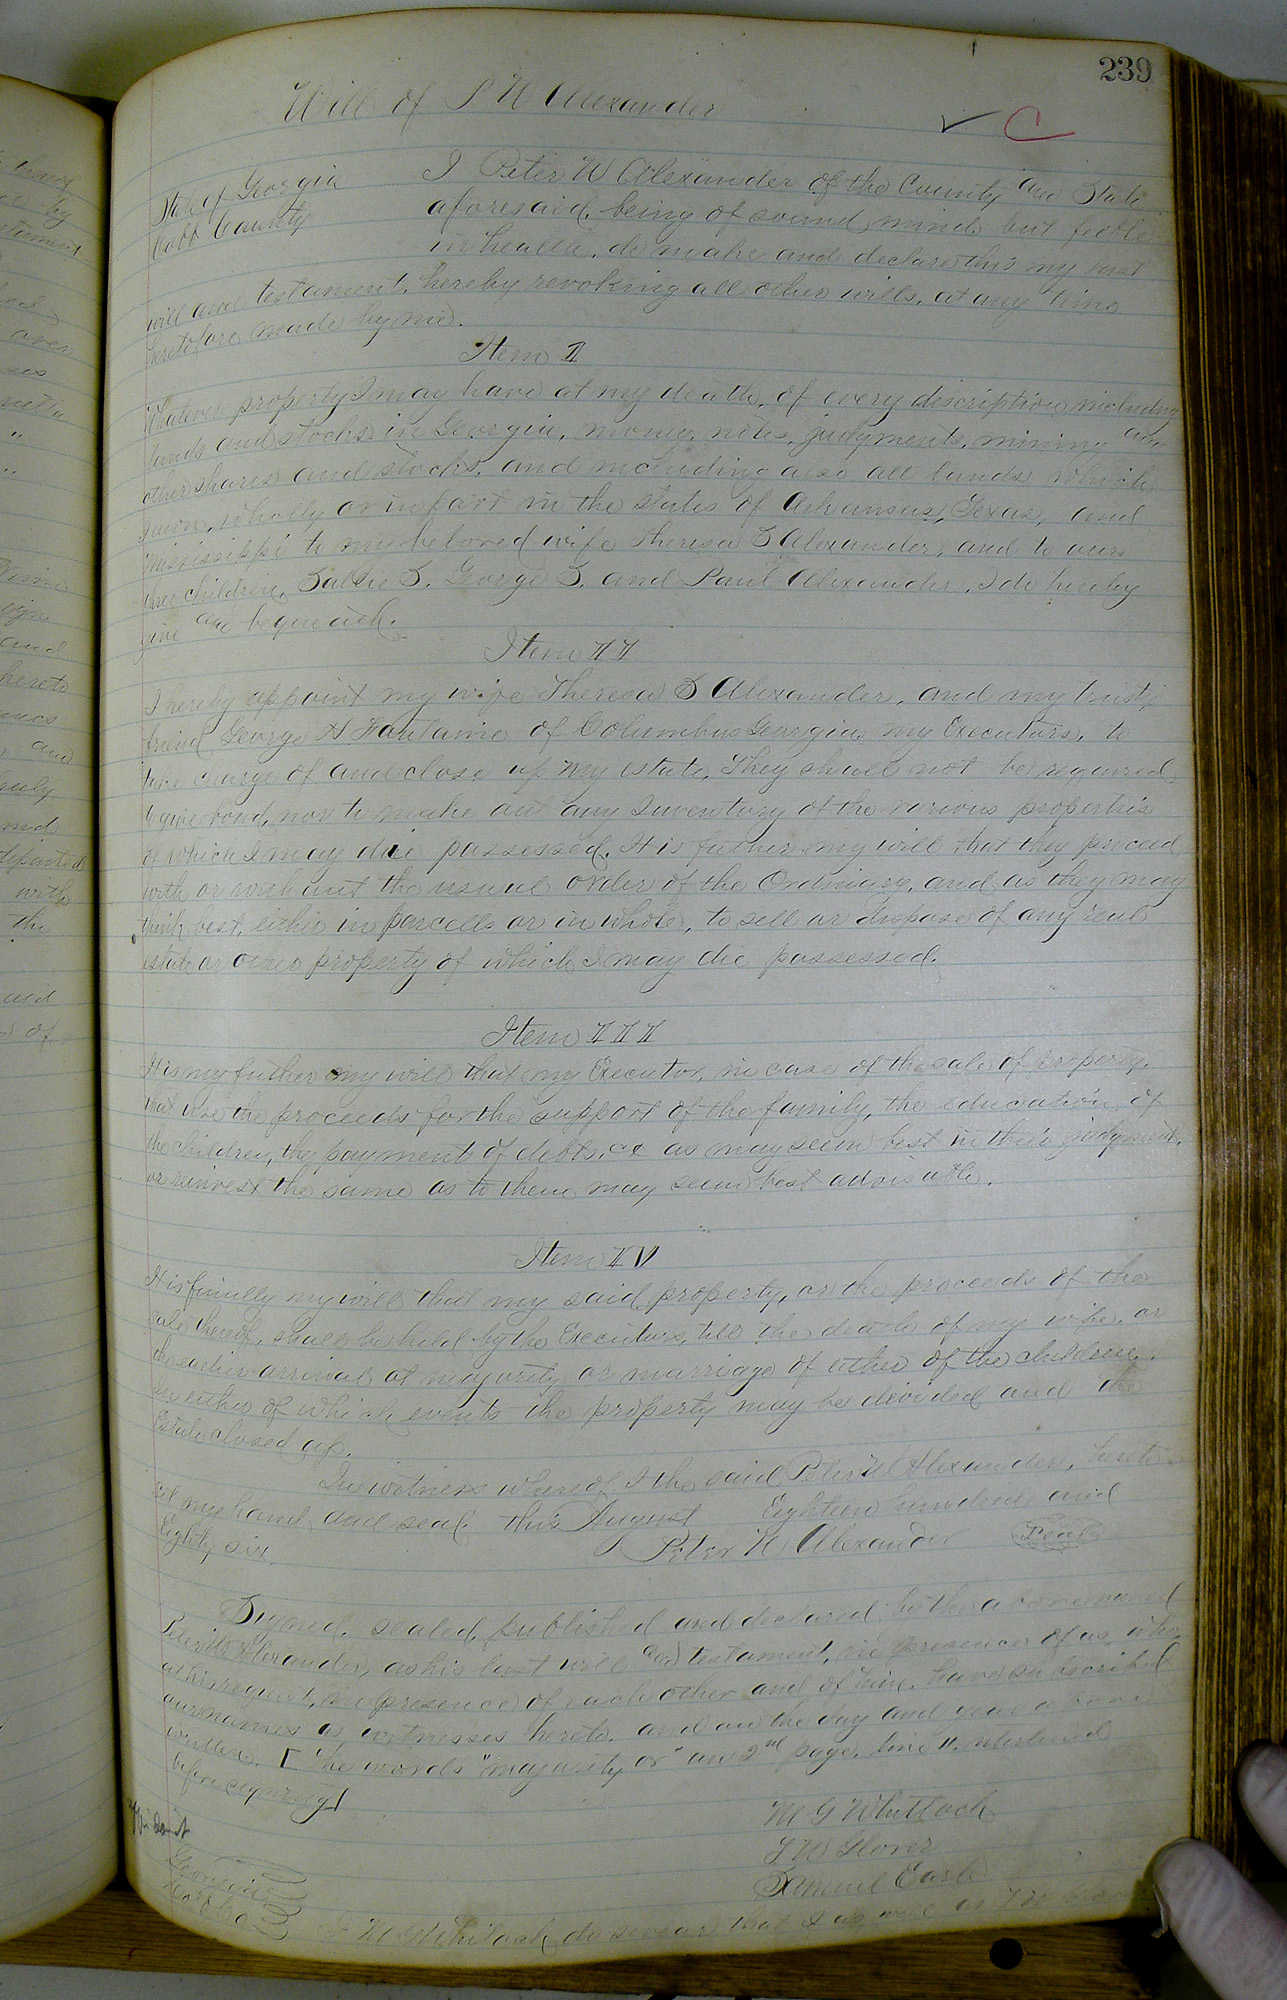 239
Will of P W Alexander
C
State of Georgia
Cobb County
I Peter W Alexander of the County and State
aforesaid, being of sound mind but feeble
in health, do make and declare this my last
will and testament, hereby revoking all other wills, at any time
heretofore made by me.
Item I
Whatever property I may have at my death, of every discription including
lands and stocks in Georgia, money, notes, judgments, mining and
other shares and stocks, and including also all lands which
I own, wholly or in part in the states of Arkansas, Texas, and
Mississippi to my beloved wife Theresa S Alexander, and to our
three children, Sallie S. George S. and Paul Alexander, I do hereby
give and bequeath.
Item II
I hereby appoint my wife Theresa S Alexander, and my trusty
friend George H Fontaine of Columbus Georgia, my Executors, to
take charge of and close up my estate. They shall not be required
to give bond, nor to make out any Inventory of the various properties
of which I may die possessed. It is futher my will that they proceed
with or without the usual order of the Ordinary, and as they may
think best, either in parcells or in whole, to sell or dispose of any real
estate or other property of which I may die possessed.
Item III
It is my futher my will that my Executor, in case of the sale of property,
that use the proceeds for the support of the family, the education of
the children, the payment of debts, &c as may seem best in their judgment,
or reinvest the same as to them may seem best advisable.
Item IV
It is finally my will that my said property, or the proceeds of the
sale thereof, shall be held by the Executors, till the death of my wife, or
the earlier arrival at majority or marriage of either of the children.
In either of which events the property may be divided and the
Estate closed up.
In witness whereof I the said Peter W Alexander, hereto
set my hand and seal this August Eighteen hundred and
Eighty six.
Peter W. Alexander Seal
Signed, sealed, published and declared by the above named
Peter W Alexander, as his last will and testament, in presence of us who,
at his request, in presence of each other and of him, have subscribed
our names as witnesses hereto, and on the day and year above
written. [The words "majority or" on 2nd page, line 11, interlined
before signing]
M G Whitlock
T W Glover
Samuel Earle
Georgia
Cobb Co
I M G Whitlock do swear that I as well as T W Glover